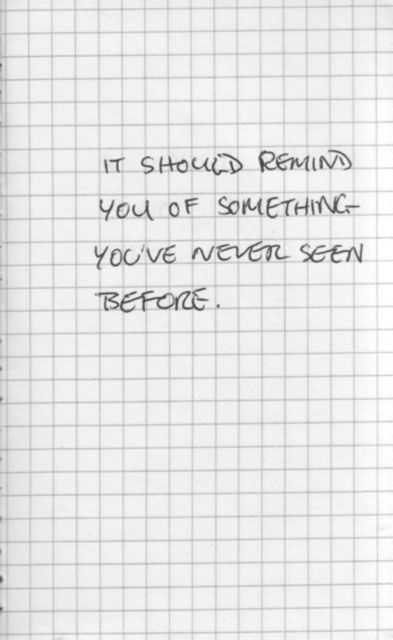 IT SHOULD REMIND
YOU OF SOMETHING
YOU'VE NEVER SEEN
BEFORE.